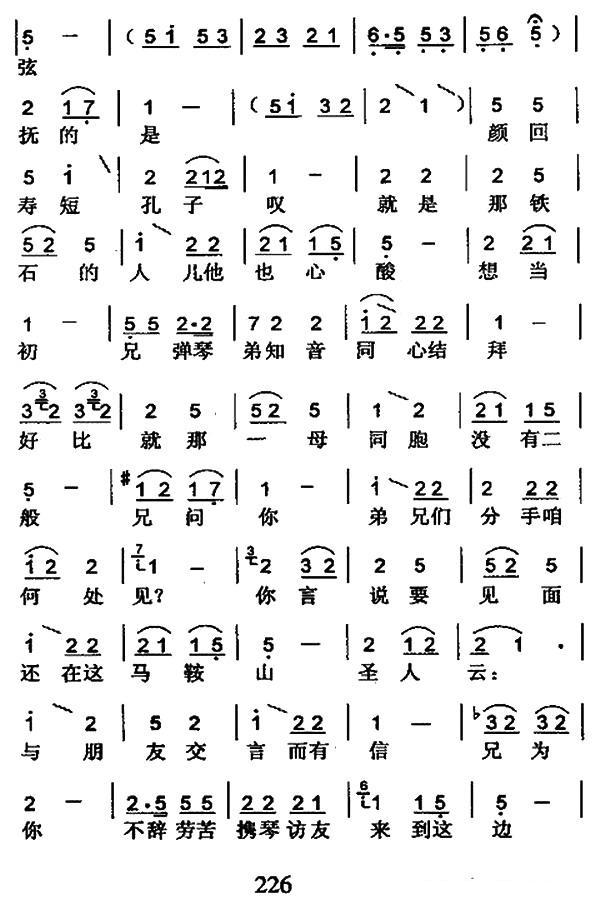 5 － （ 5 i 5 3 2 3 2 1 6 · 5 5 3 5 6 5 ）
弦
2 1 7 1 － （ 5 i 3 2 2 1 ） 5 5
抚 的 是 颜 回
5 i 2 2 1 2 1 － 2 2 2 5
寿 短 孔 子 叹 就 是 那 铁
5 2 5 i 2 2 2 1 1 5 5 － 2 2 1
石 的 人 儿他 也 心 酸 想 当
1 － 5 5 2 · 2 7 2 2 i 2 2 2 1 －
初 兄 弹琴 弟知 音 同 心结 拜
3 3 2 3 3 2 2 5 5 2 5 1 2 2 1 1 5
好 比 就 那 一 母 同 胞 没 有二
5 － # 1 2 1 7 1 － i 2 2 2 2 2
般 兄 问 你 弟 兄们 分 手咱
i 2 2 7 i 1 － 3 2 3 2 2 5 5 2 5
何 处 见？ 你 言 说 要 见 面
i 2 2 2 1 1 5 5 － 2 1 2 2 1 ·
还 在这 马 鞍 山 圣 人 云：
i 2 5 2 i 2 2 1 － b 3 2 3 2
与 朋 友 交 言 而有 信 兄 为
2 － 2 · 5 5 5 2 2 2 1 6 i 1 1 5 5 －
你 不辞 劳苦 携琴 访友 来 到这 边
226